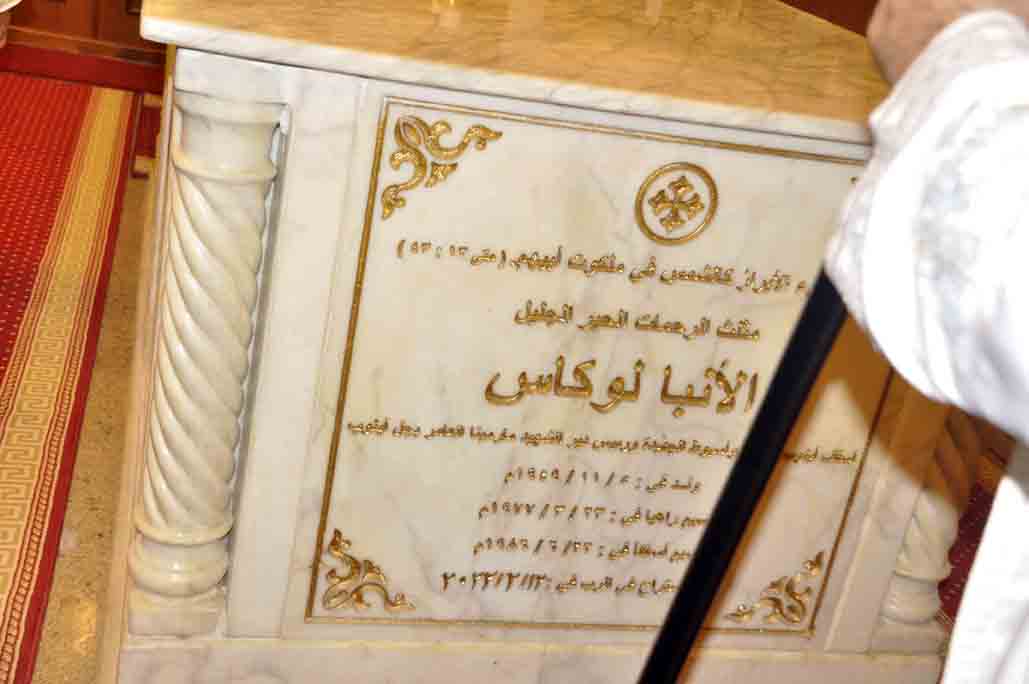 الأبرار كالشمس في ملكوت أبيهم (متى ١٣ : ٤٣)
مثلث الرحمات الحبر الجليل
الأنبا لوكاس
أسقف أبنوب وأسيوط الجديدة ورئيس دير الشهيد مارمينا المعلق بجبل أبنوب
ولد في : ٤ / ١١ / ١٩٥٩م
راهبا في : ٢٣ / ٣ / ١٩٧٧م
أسقفا في : ٢٢ / ٦ / ١٩٨٦م
في الرب في :٢٠٢٢/٢/١٢م